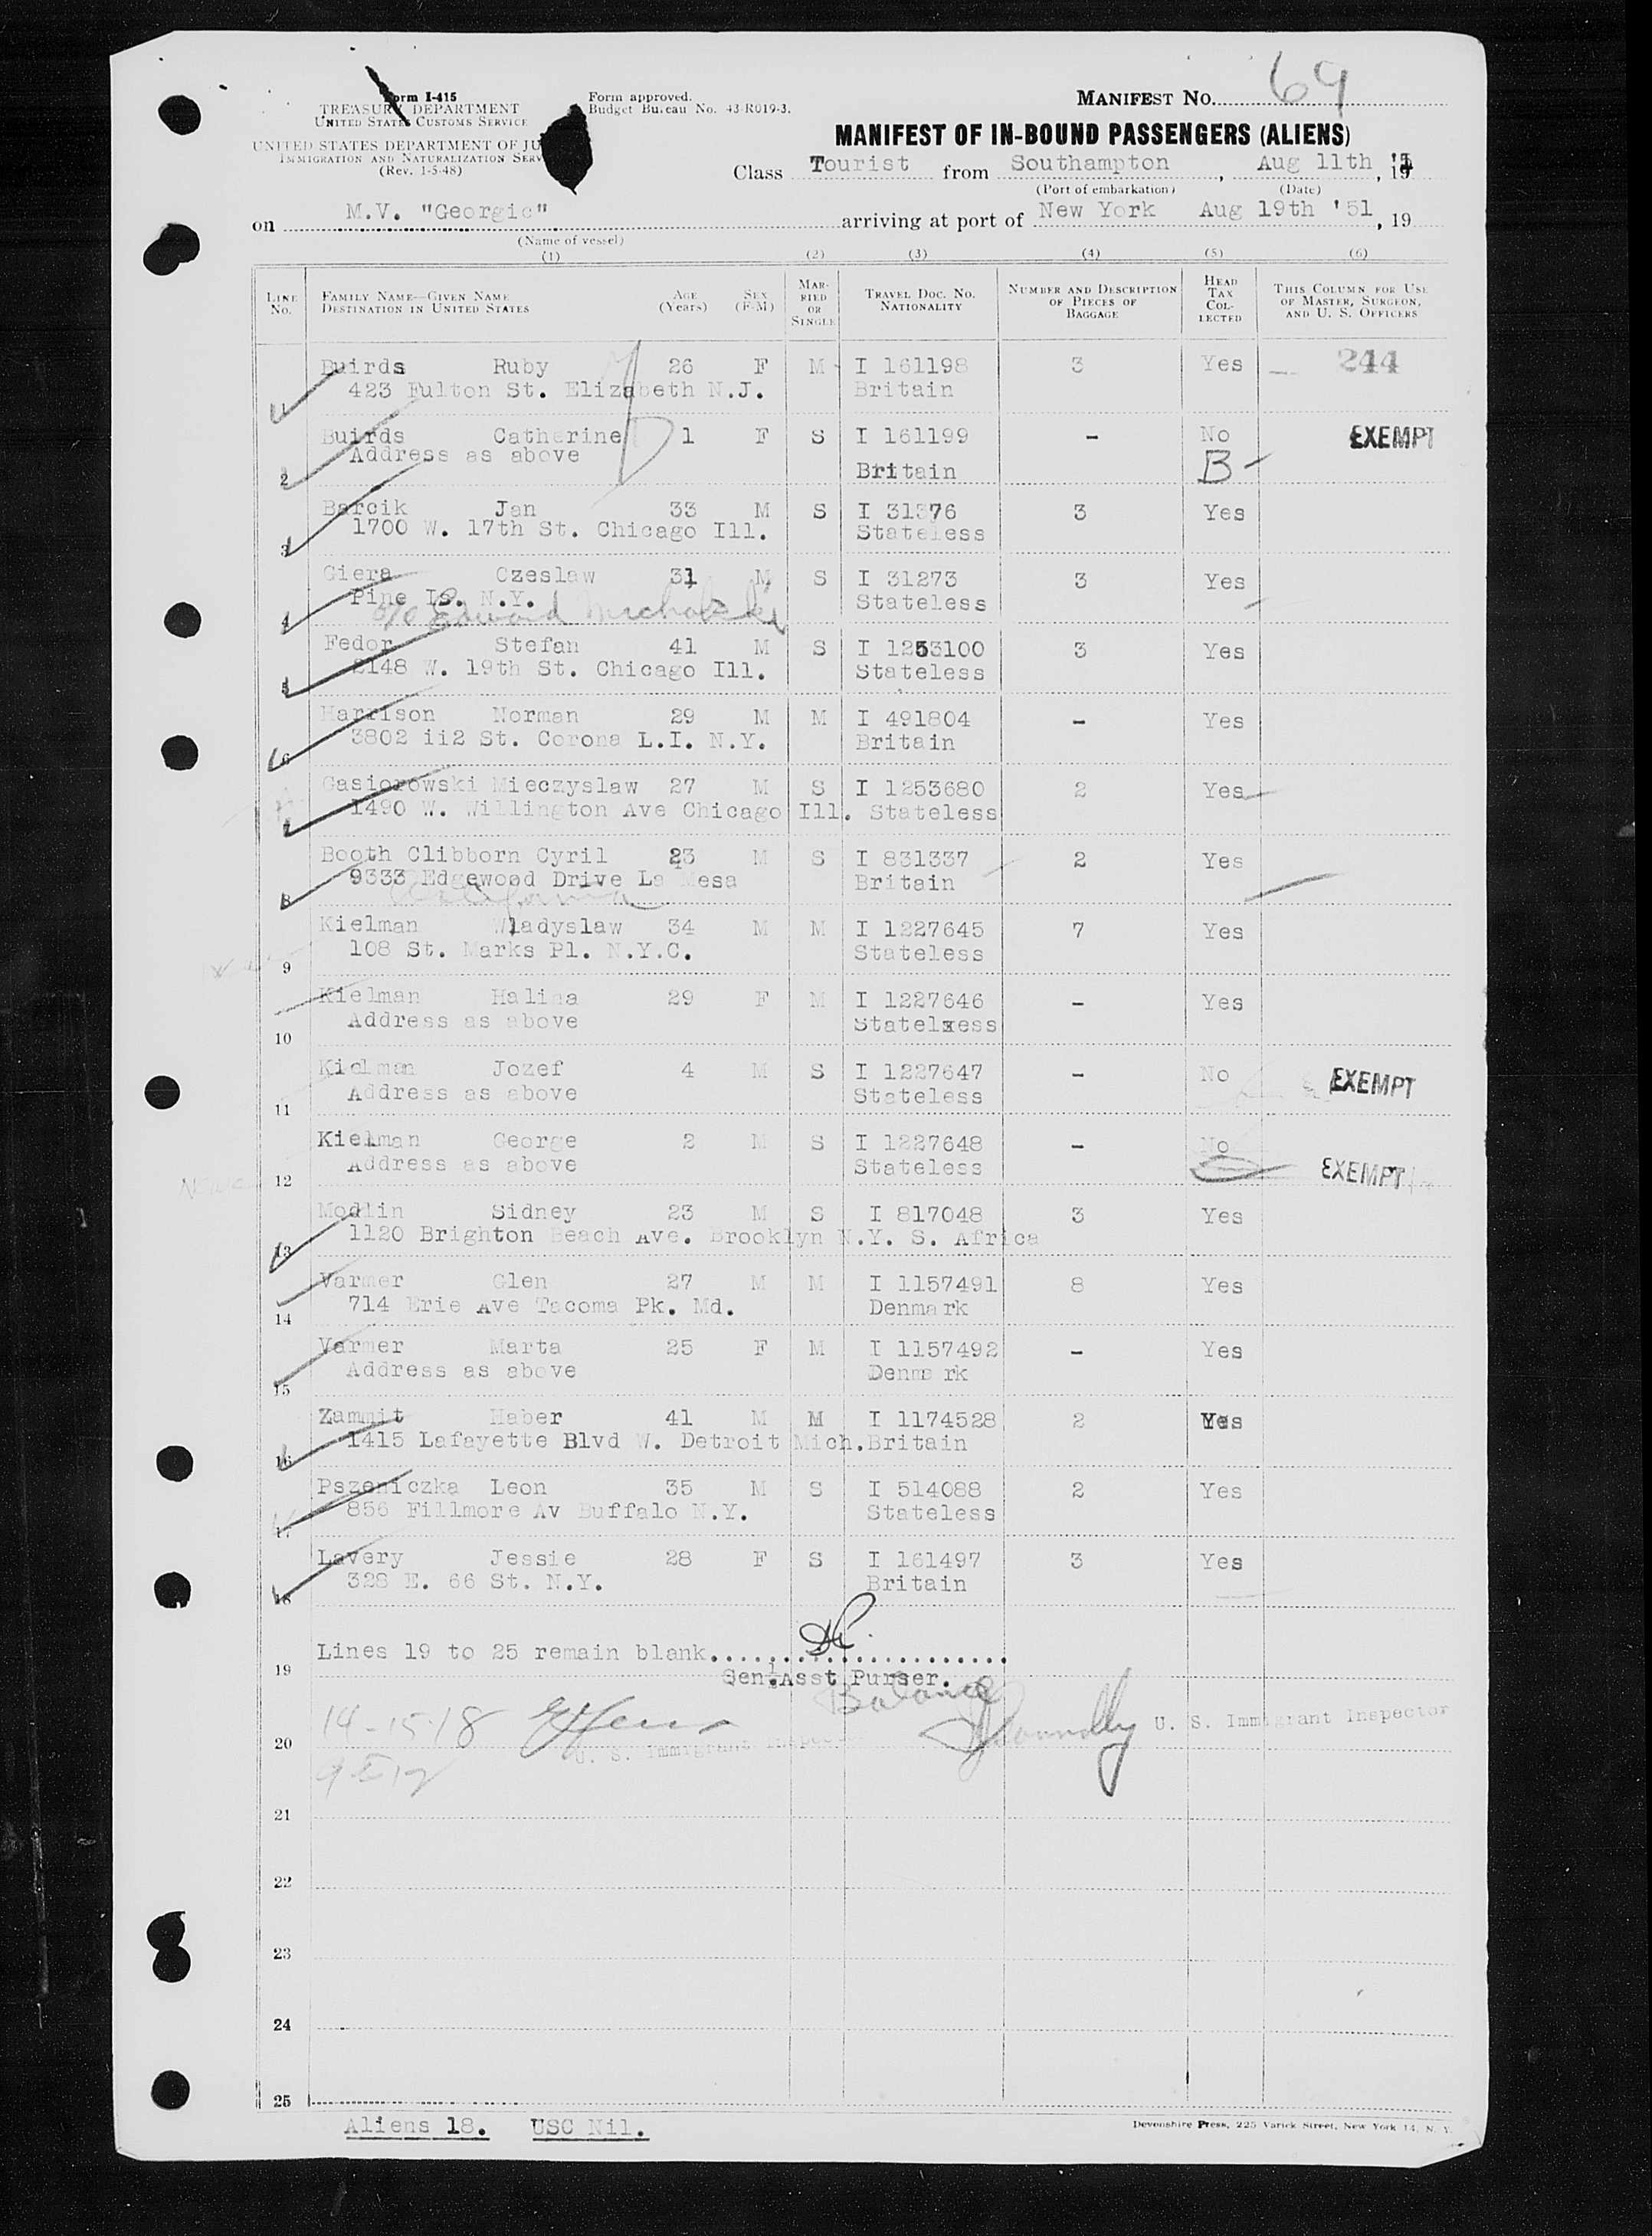 Form I-415
TREASURY DEPARTMENT
UNITED STATES CUSTOMS SERVICE
UNITED STATES DEPARTMENT OF JU
IMMIGRATION AND NATURALIZATION SERV
(Rev. 1-5-48)
Form approved.
Budget Bureau No. 43-R019-3.
MANIFEST NO. 69
MANIFEST OF IN-BOUND PASSENGERS (ALIENS)
Class Tourist from Southampton, Aug 11th '51, 19
(Port of embarkation) (Date)
on M.V. "Georgic" arriving at port of New York Aug 19th '51, 19
(Name of vessel)
(1) (2) (3) (4) (5) (6)
LINE NO. FAMILY NAME—GIVEN NAME DESTINATION IN UNITED STATES AGE (Years) SEX (F-M) MARRIED OR SINGLE TRAVEL DOC. NO. NATIONALITY NUMBER AND DESCRIPTION OF PIECES OF BAGGAGE HEAD TAX COLLECTED THIS COLUMN FOR USE OF MASTER, SURGEON, AND U. S. OFFICERS
1 Buirds Ruby 26 F M I 161198 3 Yes 244
423 Fulton St. Elizabeth N.J. Britain
2 Buirds Catherine 1 F S I 161199 - No EXEMPT
Address as above Britain B-
3 Barcik Jan 33 M S I 31376 3 Yes
1700 W. 17th St. Chicago Ill. Stateless
4 Giera Czeslaw 31 M S I 31273 3 Yes
Pine Is. N.Y. Stateless
c/o Edward
5 Fedor Stefan 41 M S I 1253100 3 Yes
2148 W. 19th St. Chicago Ill. Stateless
6 Harrison Norman 29 M M I 491804 - Yes
3802 112 St. Corona L.I. N.Y. Britain
7 Gasiorowski Mieczyslaw 27 M S I 1253680 2 Yes
1490 W. Willington Ave Chicago Ill. Stateless
8 Booth Clibborn Cyril 23 M S I 831337 2 Yes
9333 Edgewood Drive La Mesa Britain
California
9 Kielman Wladyslaw 34 M M I 1227645 7 Yes
108 St. Marks Pl. N.Y.C. Stateless
10 Kielman Halina 29 F M I 1227646 - Yes
Address as above Statelxess
11 Kielman Jozef 4 M S I 1227647 - No EXEMPT
Address as above Stateless
12 Kielman George 2 M S I 1227648 - No
Address as above Stateless EXEMPT
13 Modlin Sidney 23 M S I 817048 3 Yes
1120 Brighton Beach Ave. Brooklyn N.Y. S. Africa
14 Varmer Glen 27 M M I 1157491 8 Yes
714 Erie Ave Tacoma Pk. Md. Denmark
15 Varmer Marta 25 F M I 1157492 - Yes
Address as above Denmark
16 Zammit Haber 41 M M I 1174528 2 Yes
1415 Lafayette Blvd W. Detroit Mich. Britain
17 Pszeniczka Leon 35 M S I 514088 2 Yes
856 Fillmore Av Buffalo N.Y. Stateless
18 Lavery Jessie 28 F S I 161497 3 Yes
328 E. 66 St. N.Y. Britain
19 Lines 19 to 25 remain blank......................
Gen. Asst Purser.
Balance
14-15-18 U. S. Immigrant Inspector
20 U. S. Immigrant Inspector
21
22
23
24
25
Aliens 18. USC Nil.
Devonshire Press, 225 Varick Street, New York 14, N. Y.